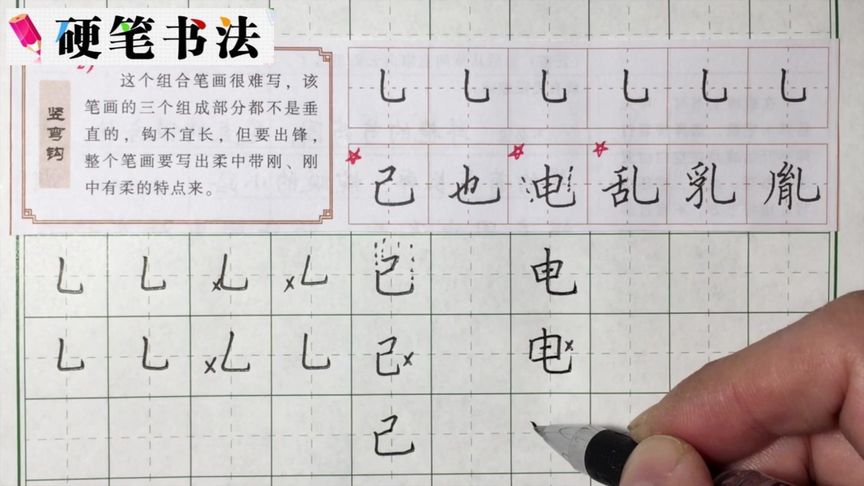 硬笔书法
竖弯钩
这个组合笔画很难写，该
笔画的三个组成部分都不是垂
直的，钩不宜长，但要出锋，
整个笔画要写出柔中带刚、刚
中有柔的特点来。
乚 乚 乚 乚 乚 乚
己 也 电 乱 乳 胤
乚 乚 乚 乚 己 电
乚 乚 乚 乚 己 电
己